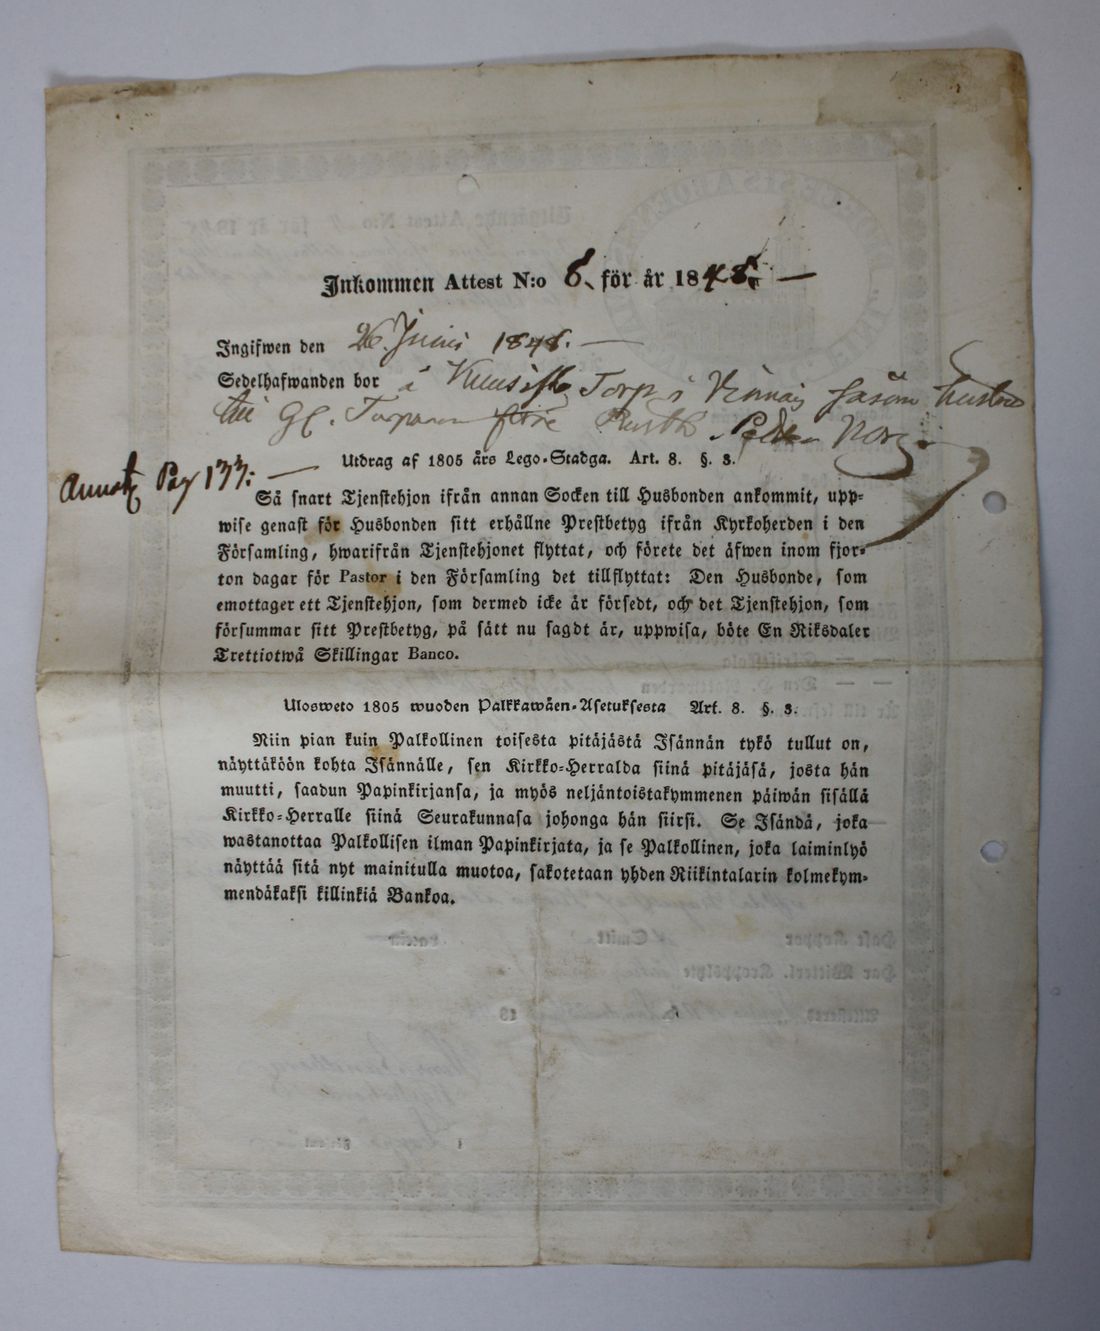 Inkommen Attest N:o 8. för år 1848. —
Ingifwen den 26 Junii 1848. —
Sedelhafwanden bor å Torp i såsom hustru
till Gl. Torparen Pehr
Utdrag af 1805 års Lego-Stadga. Art. 8. §. 3.
Annot. Pag 133: —
Så snart Tjenstehjon ifrån annan Socken till Husbonden ankommit, upp-
wise genast för Husbonden sitt erhållne Prestbetyg ifrån Kyrkoherden i den
Församling, hwarifrån Tjenstehjonet flyttat, och förete det äfwen inom fjor-
ton dagar för Pastor i den Församling det tillflyttat: Den Husbonde, som
emottager ett Tjenstehjon, som dermed icke är försedt, och det Tjenstehjon, som
försummar sitt Prestbetyg, på sätt nu sagdt är, uppwisa, böte En Riksdaler
Trettiotwå Skillingar Banco.
Ulosweto 1805 wuoden Palkkawäen-Asetuksesta Art. 8. §. 3.
Niin pian kuin Palkollinen toisesta pitäjästä Isännän tykö tullut on,
näyttäköön kohta Isännälle, sen Kirkko-Herralda siinä pitäjäsä, josta hän
muutti, saadun Papinkirjansa, ja myös neljäntoistakymmenen päiwän sisällä
Kirkko-Herralle siinä Seurakunnasa johonga hän siirsi. Se Isändä, joka
wastanottaa Palkollisen ilman Papinkirjata, ja se Palkollinen, joka laiminlyö
näyttää sitä nyt mainitulla muotoa, sakotetaan yhden Riikintalarin kolmekym-
mendäkaksi killinkiä Bankoa.